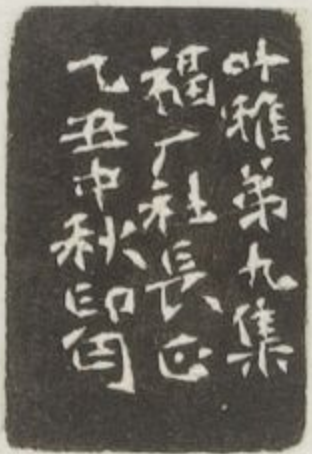 叶雅第九集
福厂社長正
乙丑中秋印匄